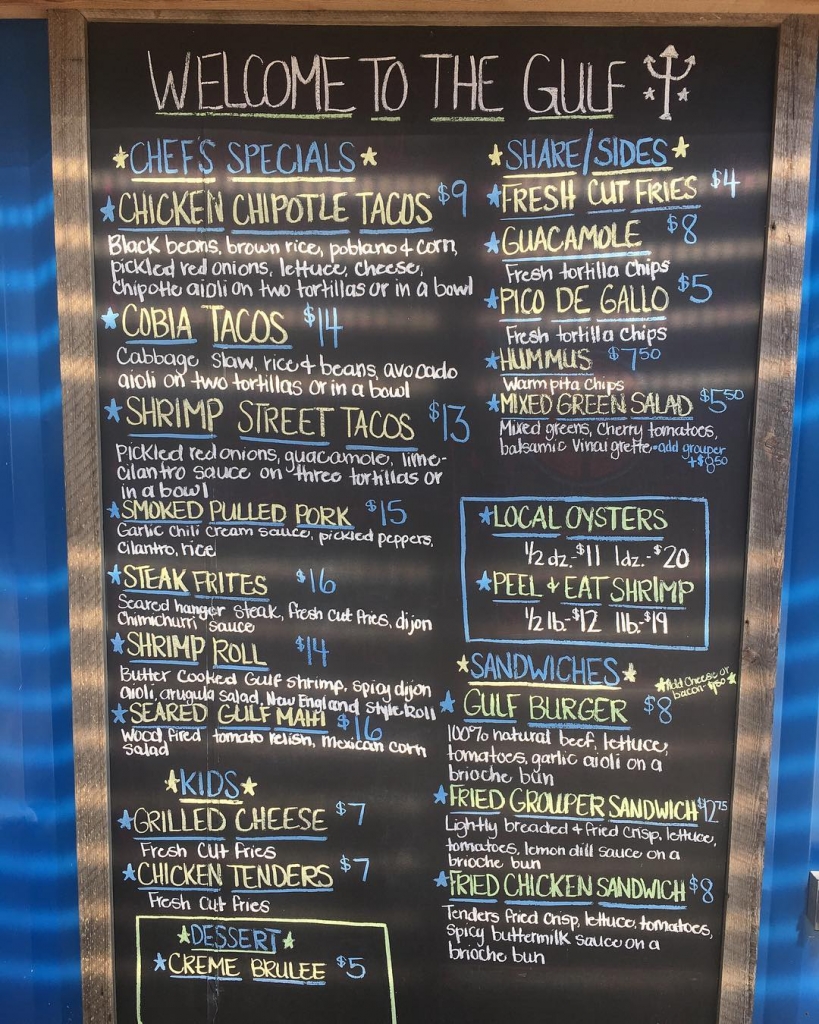 WELCOME TO THE GULF
CHEFS SPECIALS
CHICKEN CHIPOTLE TACOS $9
Black beans, brown rice, poblano & corn,
pickled red onions, lettuce, cheese,
Chipotle aioli on two tortillas or in a bowl
COBIA TACOS $14
Cabbage slaw, rice & beans, avocado
aioli on two tortillas or in a bowl
SHRIMP STREET TACOS $13
Pickled red onions, guacamole, lime-
cilantro sauce on three tortillas or
in a bowl
SMOKED PULLED PORK $15
Garlic Chili Cream sauce, pickled peppers,
cilantro, rice
STEAK FRITES $16
Seared hanger steak, fresh cut fries, dijon
Chimichurri sauce
SHRIMP ROLL $14
Butter Cooked Gulf shrimp, spicy dijon
aioli, arugula salad, New England style Roll
SEARED GULF MAHI $16
Wood fired tomato relish, mexican corn
salad
KIDS
GRILLED CHEESE $7
Fresh Cut fries
CHICKEN TENDERS $7
Fresh Cut fries
DESSERT
CREME BRULEE $5
SHARE/SIDES
FRESH CUT FRIES $4
GUACAMOLE $8
Fresh tortilla Chips
PICO DE GALLO $5
Fresh tortilla Chips
HUMMUS $7.50
Warm pita Chips
MIXED GREEN SALAD $5.50
Mixed greens, Cherry tomatoes,
balsamic Vinaigrette - add grouper
+$8.50
LOCAL OYSTERS
1/2 dz.-$11 1dz.-$20
PEEL & EAT SHRIMP
1/2 lb-$12 1lb-$19
SANDWICHES
Add Cheese or
bacon-$1.50
GULF BURGER $8
100% natural beef, lettuce,
tomatoes, garlic aioli on a
brioche bun
FRIED GROUPER SANDWICH $12.75
Lightly breaded & fried crisp, lettuce,
tomatoes, lemon dill sauce on a
brioche bun
FRIED CHICKEN SANDWICH $8
Tenders fried crisp, lettuce, tomatoes,
spicy buttermilk sauce on a
brioche bun